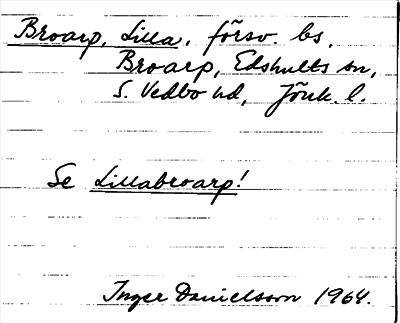 Broarp, Lilla, försv. bs,
Broarp, Edshults sn,
S. Vedbo hd, Jönk. l.
Se Lillabroarp!
Inger Danielsson 1964.